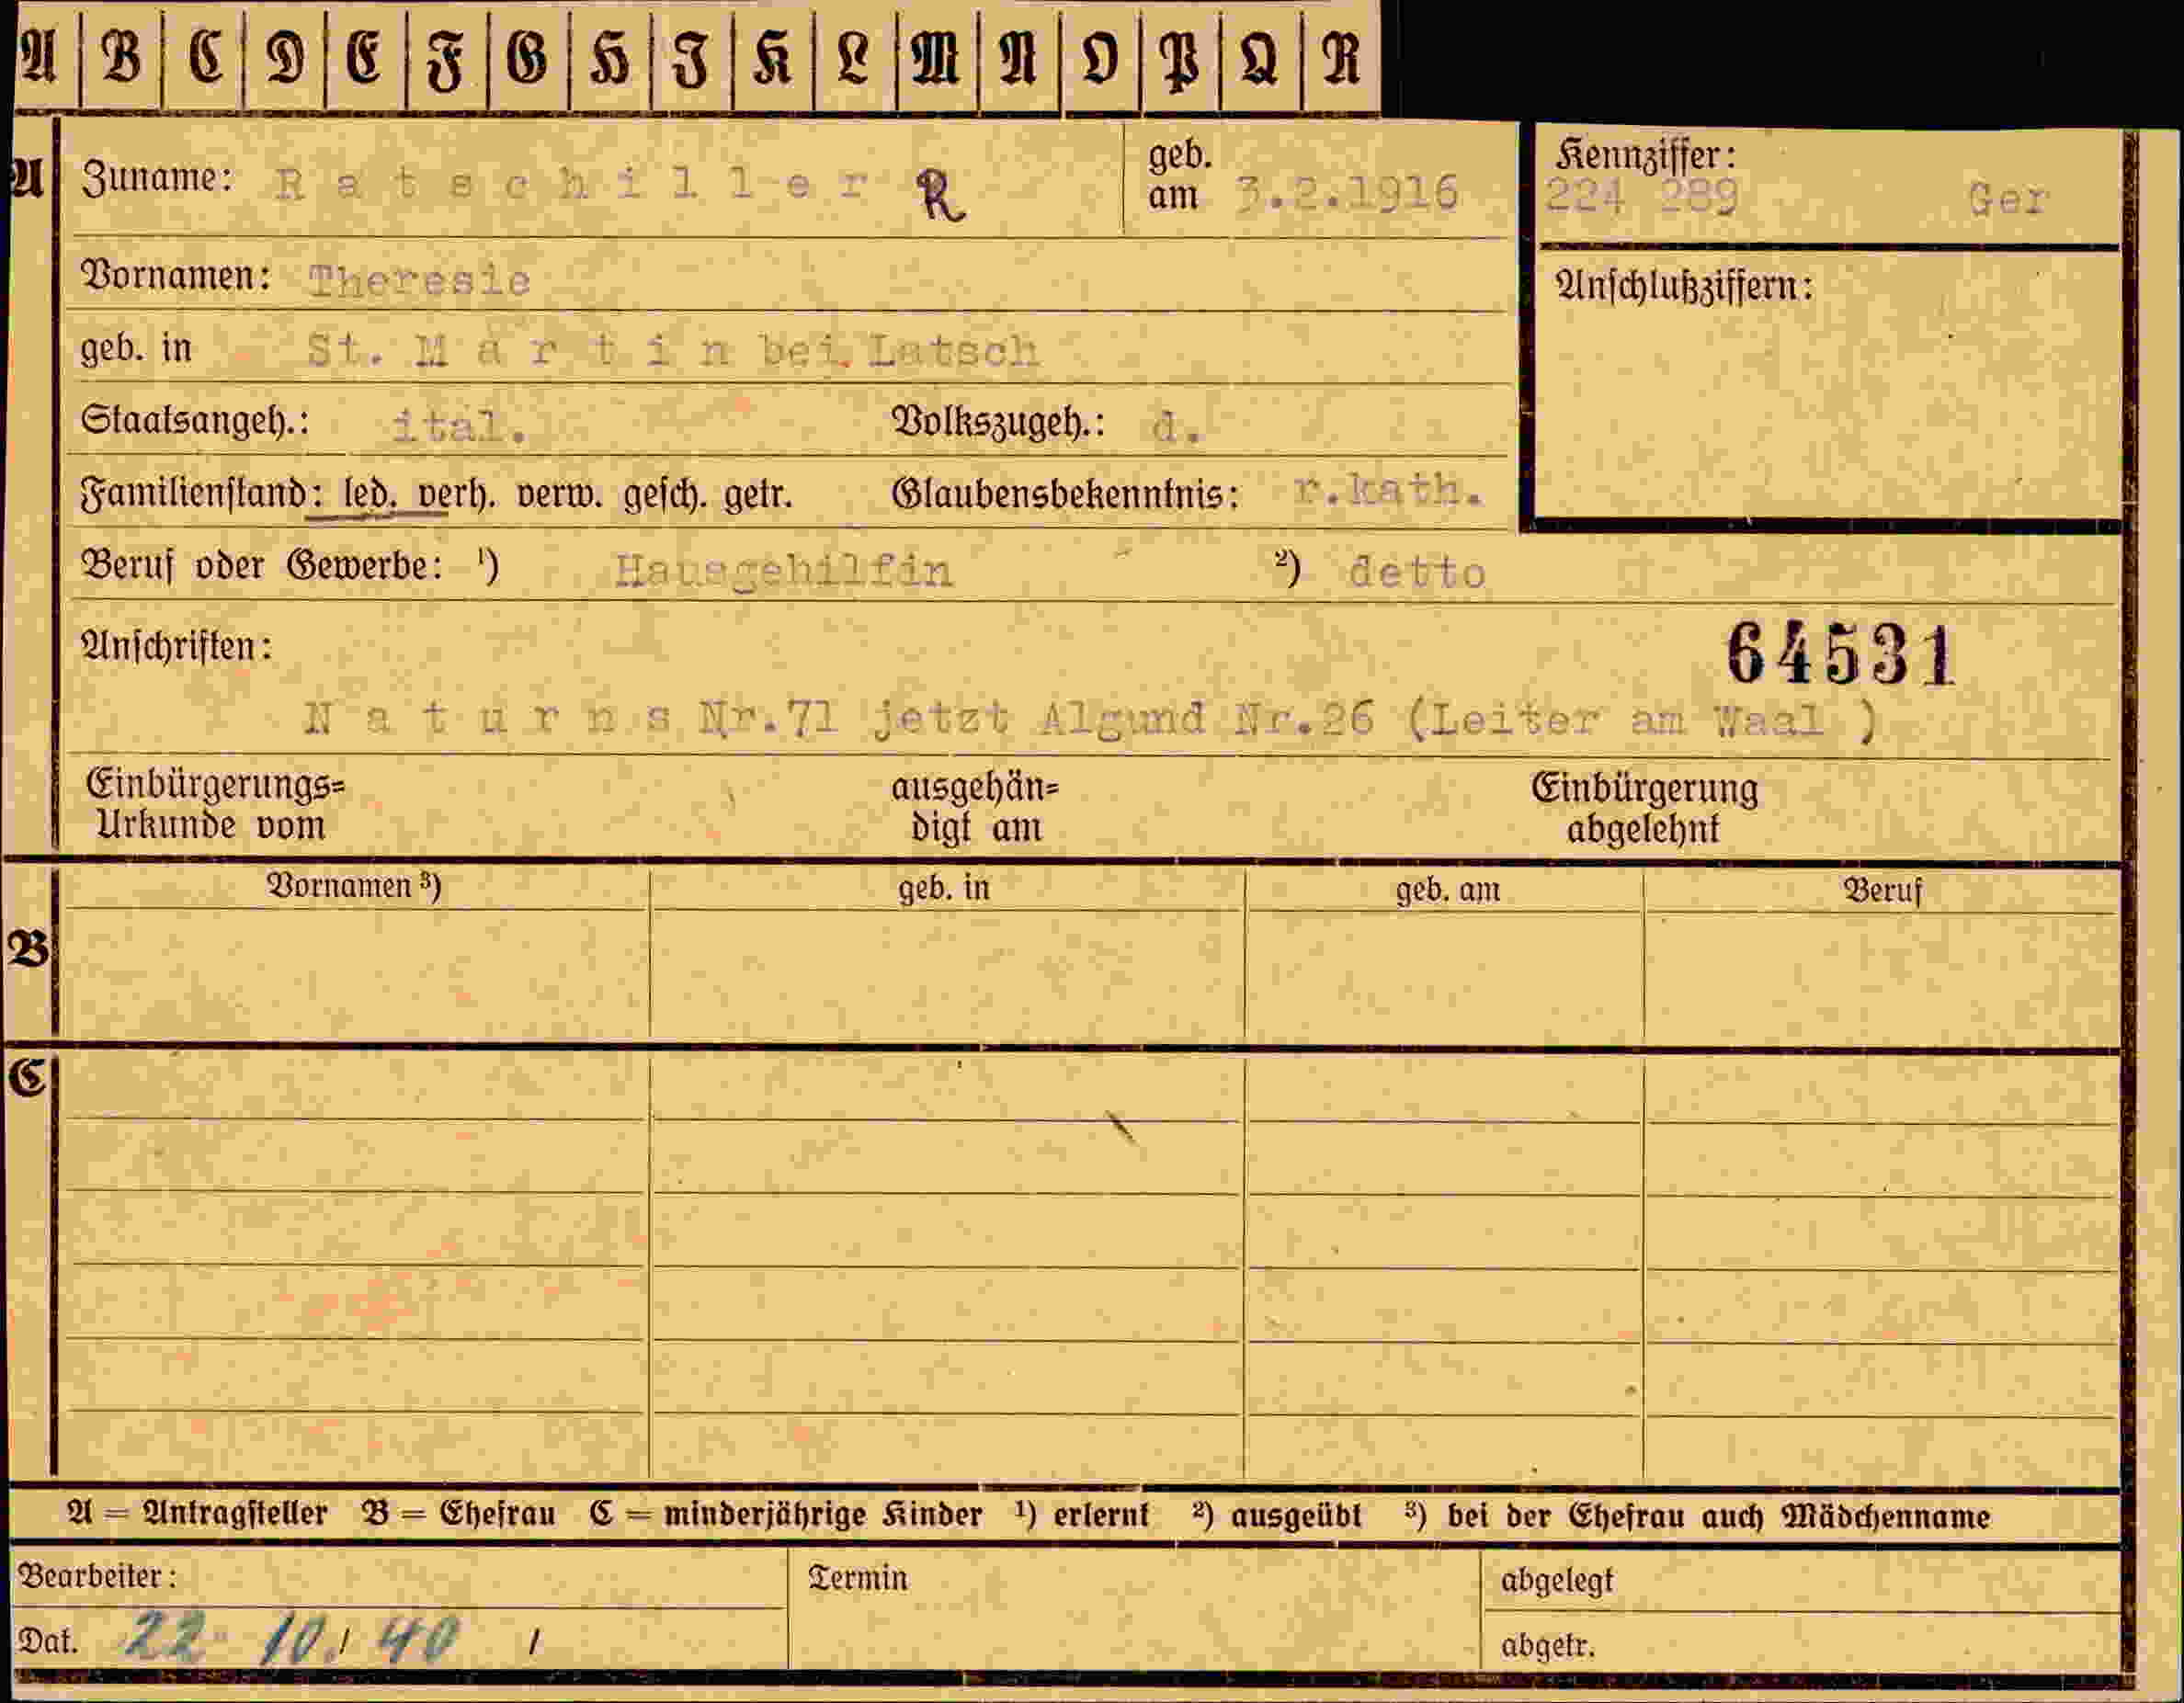 A B C D E F G H I K L M N O P Q R
A
Zuname: Ratschiller R
geb. am 3.2.1916
Kennziffer:
224 289 Ger
Vornamen: Theresie
Anschlußziffern:
geb. in St. Martin bei Latsch
Staatsangeh.: ital. Volkszugeh.: d.
Familienstand: led. verh. verw. gesch. getr. Glaubensbekenntnis: r.kath.
Beruf oder Gewerbe: ¹) Hausgehilfin ²) detto
Anschriften:
64531
Naturns Nr.71 jetzt Algund Nr.26 (Leiter am Waal )
Einbürgerungs= ausgehän= Einbürgerung
Urkunde vom digt am abgelehnt
Vornamen ³) geb. in geb. am Beruf
B
C
A = Antragsteller B = Ehefrau C = minderjährige Kinder ¹) erlernt ²) ausgeübt ³) bei der Ehefrau auch Mädchenname
Bearbeiter: Termin abgelegt
Dat. 22 10./ 40 / abgetr.